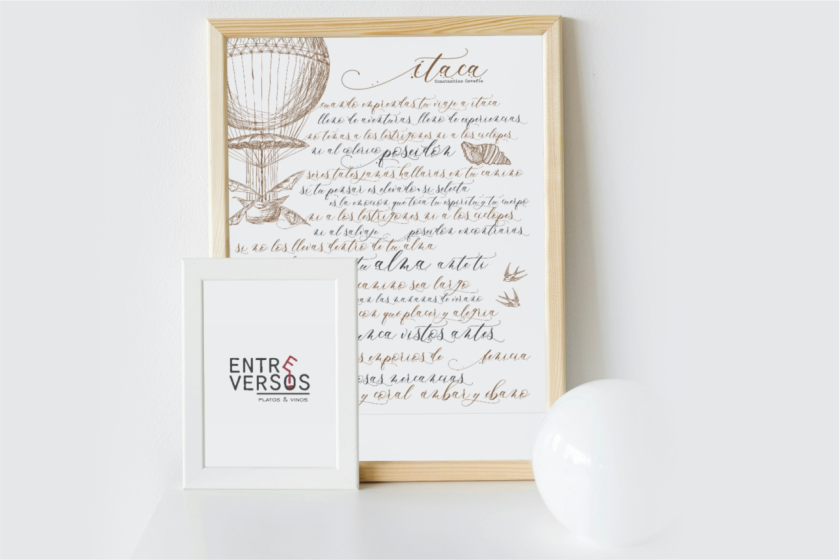 itaca
Constantino Cavafis
cuando emprendas tu viaje a itaca
lleno de aventuras, lleno de experiencias
no temas a los lestrigones ni a los ciclopes
ni al colérico poseidon
seres tales jamas hallaras en tu camino
si tu pensar es elevado, si selecta
es la emocion que toca tu espiritu y tu cuerpo
ni a los lestrigones ni a los ciclopes
ni al salvaje poseidon encontraras
si no los llevas dentro de tu alma
tu alma ante ti
camino sea largo
las mañanas de verano
con que placer y alegria
nunca vistos antes
emporios de fenicia
mercancias
y coral ambar y ebano
ENTRE
VERSOS
PLATOS & VINOS